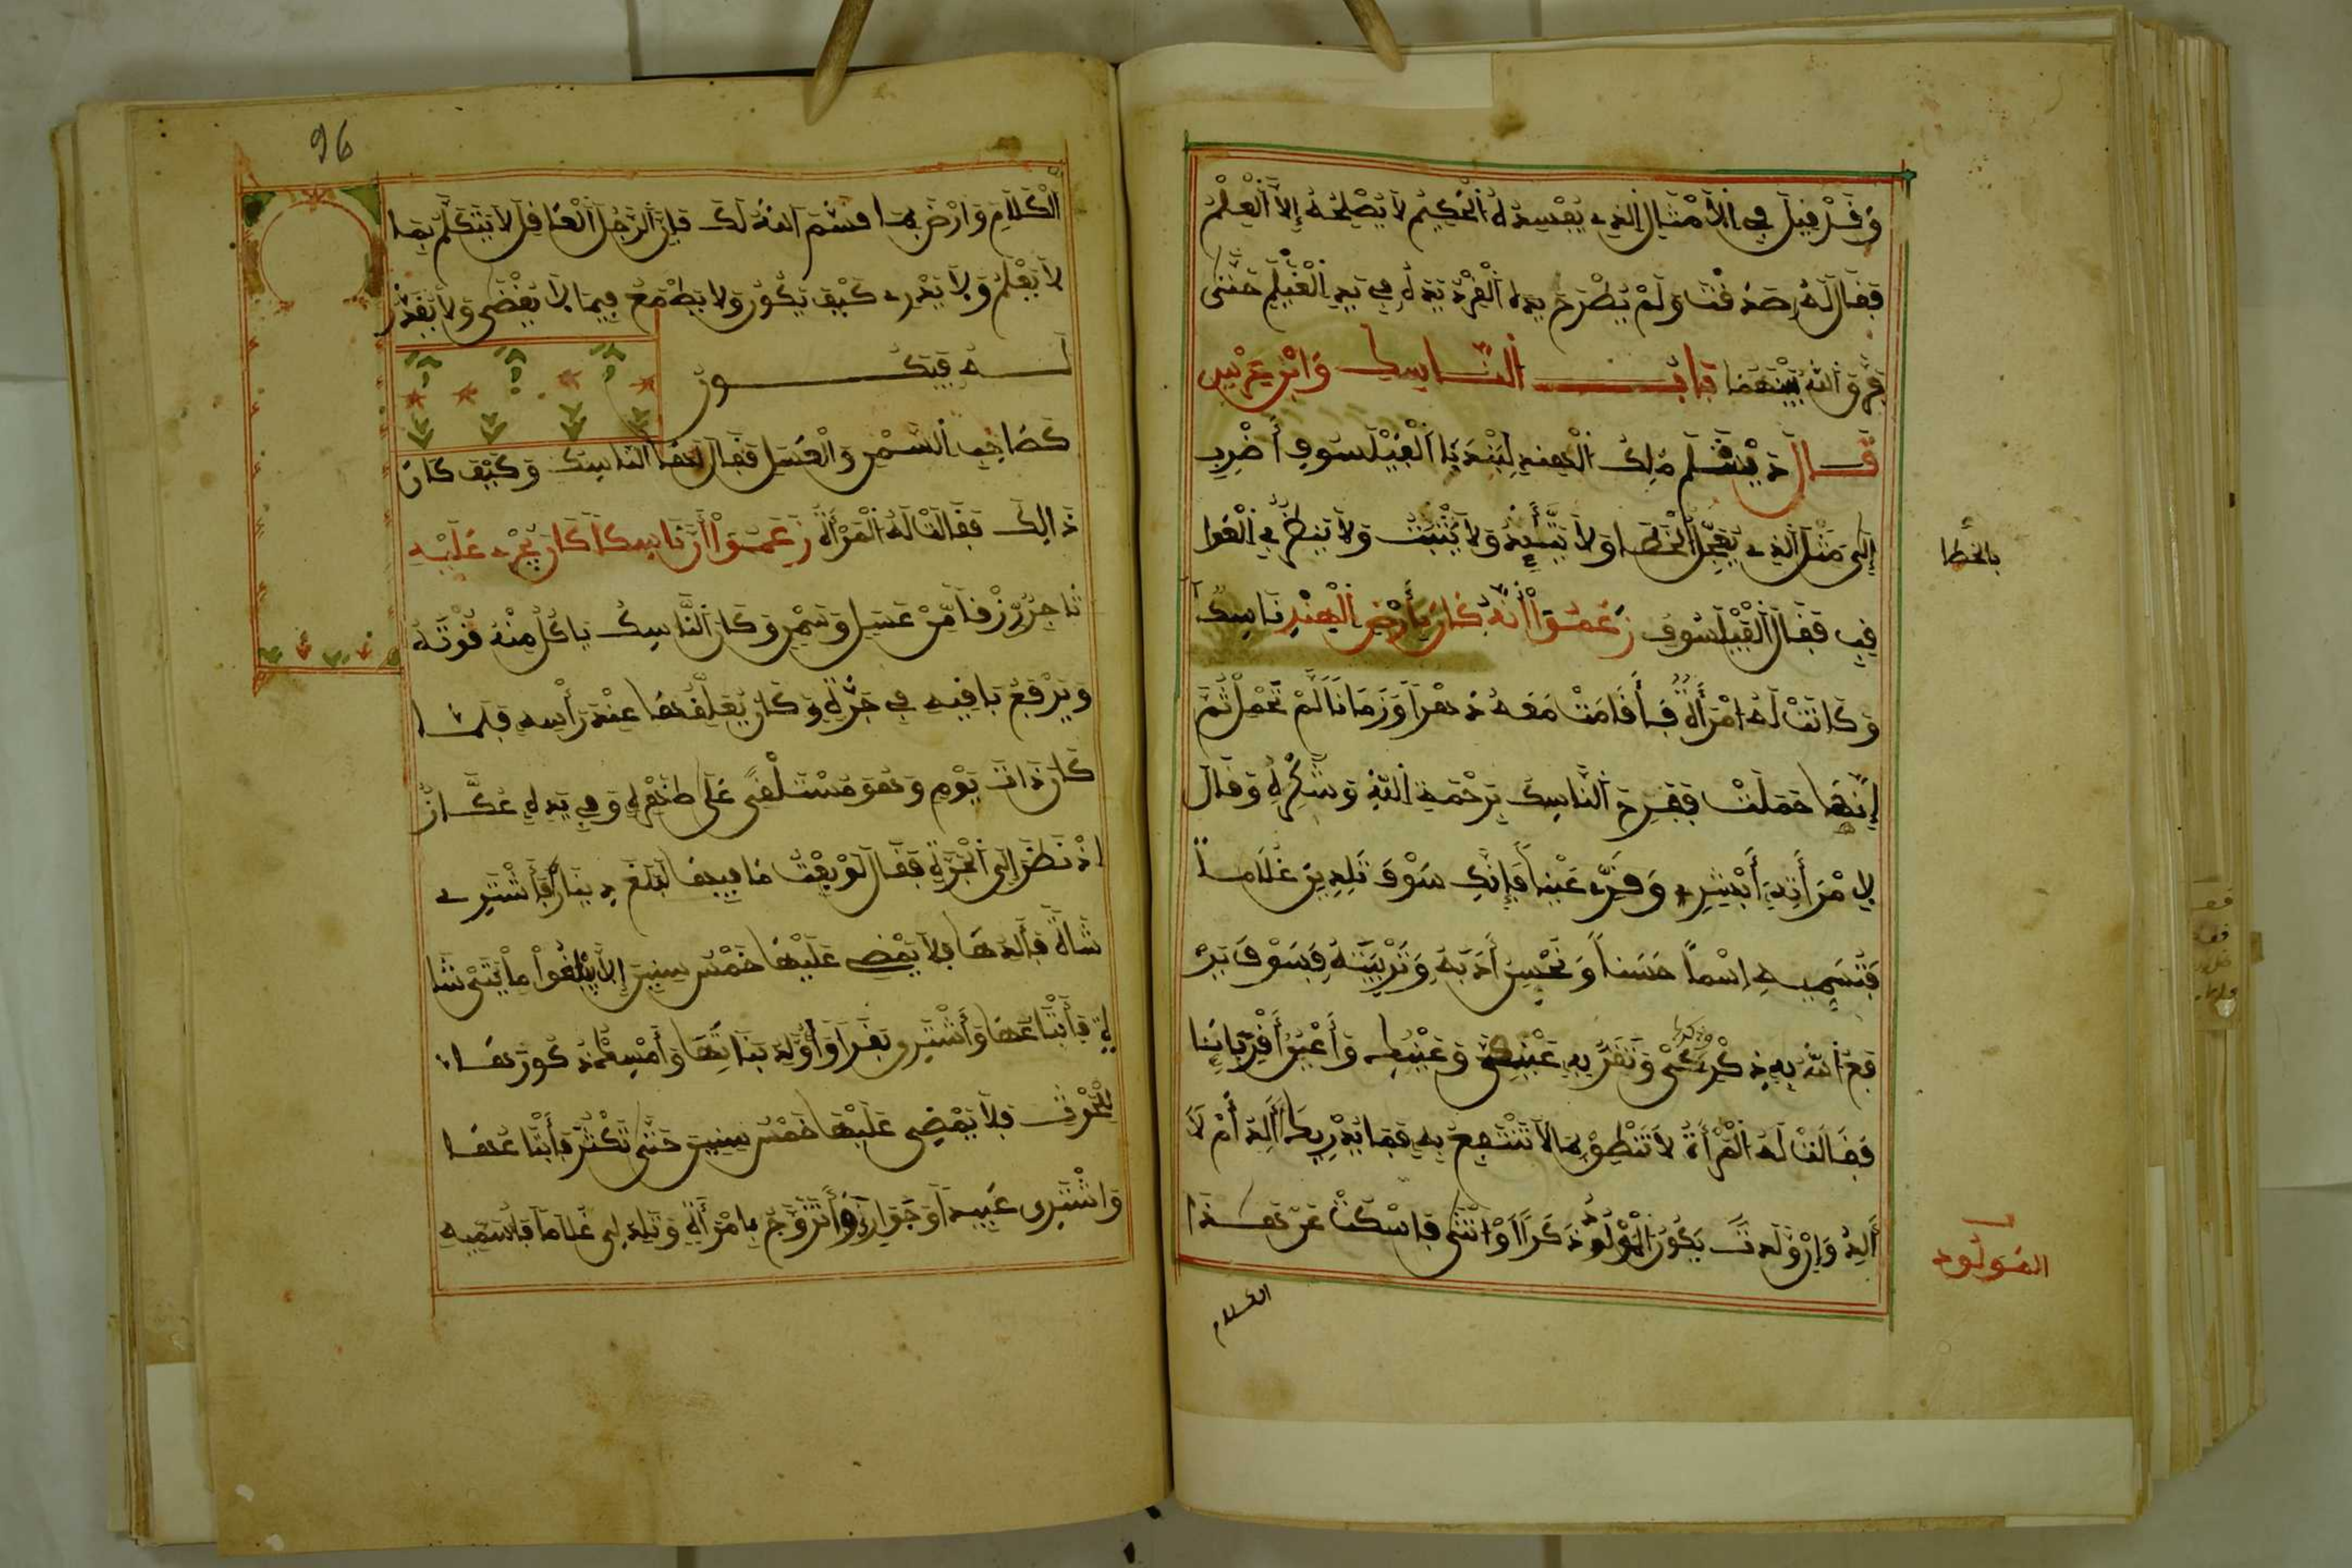 وَقَدْ قِيلَ فِي الْأَمْثَالِ الذِي يُفْسِدُهُ الْحَكِيمُ لَا يُصْلِحُهُ إِلَّا الْعِلْمُ
فَقَالَ لَهُ صَدَقْتَ وَلَمْ يَطْرَحْ يَدَهُ الْقِرْدُ يَدَهُ فِي يَدِ الْغَيْلَمِ حَتَّى
فَرَّقَ اللَّهُ بَيْنَهُمَا بَابُ النَّاسِكِ وَابْنِ عِرْسٍ
قَالَ دَبْشَلَمُ مَلِكُ الْهِنْدِ لِبَيْدَبَا الْفَيْلَسُوفِ أَضْرِبْ
إِلَيَّ مَثَلَ الذِي يُعَجِّلُ الْخَطَا وَلَا يَتَّئِدُ وَلَا يَتَثَبَّتُ وَلَا يَنظُرُ فِي الْعَوَا
بالخطا
قِبِ فَقَالَ الْفَيْلَسُوفُ زَعَمُوا أَنَّهُ كَانَ بِأَرْضِ الْهِنْدِ نَاسِكٌ
وَكَانَتْ لَهُ امْرَأَةٌ فَأَقَامَتْ مَعَهُ دَهْرًا وَزَمَانًا لَمْ تَحْمِلْ ثُمَّ
إِنَّهَا حَمَلَتْ فَفَرِحَ النَّاسِكُ بِرَحْمَةِ اللَّهِ وَشَكَرَهُ وَقَالَ
لِامْرَأَتِهِ أَبْشِرِي وَقَرِّي عَيْنًا فَإِنَّكِ سَوْفَ تَلِدِينَ غُلَامًا
فَتُسَمِّيهِ اسْمًا حَسَنًا وَنُحْسِنُ أَدَبَهُ وَتَرْبِيَتَهُ فَسَوْفَ يَرْ
فَعُ اللَّهُ بِهِ ذِكْرَكِ وَتَقَرُّ بِهِ عَيْنِي وَعَيْنُكِ وَأَعْيُنُ أَقْرِبَائِنَا
وذكرك
فَقَالَتْ لَهُ الْمَرْأَةُ لَا تَنْطِقْ بِمَا لَا تَنْتَفِعُ بِهِ فَمَا يُدْرِيكَ أَلِدُ أَمْ لَا
أَلِدُ وَإِنْ وَلَدتُّ يَكُونُ الْمَوْلُودُ ذَكَرًا أَوْ انْثَى فَاسْكُتْ عَنْ هَذَا
المولود
الكلام
96
الْكَلَامِ وَارْضَ بِمَا قَسَمَ اللَّهُ لَكَ فَإِنَّ الرَّجُلَ الْعَاقِلَ لَا يَتَكَلَّمُ بِمَا
لَا يَعْلَمُ وَلَا يَدْرِي كَيْفَ يَكُونُ وَلَا يَطْمَعُ فِيمَا لَا يُقْضَى وَلَا يُقَدَّرُ
لَهُ فَيَكُونُ
كَصَاحِبِ السَّمْنِ وَالْعَسَلِ فَقَالَ لَهَا النَّاسِكُ وَكَيْفَ كَانَ
ذَالِكَ فَقَالَتْ لَهُ الْمَرْأَةُ زَعَمُوا أَنَّ نَاسِكًا كَانَ يُجْرِي عَلَيْهِ
تَاجِرٌ رِزْقًا مِنْ عَسَلٍ وَسَمْنٍ وَكَانَ النَّاسِكُ يَاكُلُ مِنْهُ قُوتَهُ
وَيَرْفَعُ بَاقِيهِ فِي جَرَّةٍ وَكَانَ يُعَلِّقُهَا عِنْدَ رَأْسِهِ فَلَمَّا
كَانَ ذَاتَ يَوْمٍ وَهُوَ مُسْتَلْقِي عَلَى ظَهْرِهِ وَفِي يَدِهِ عُكَّازٌ
اذْ نَظَرَ إِلَى الْجَرَّةِ فَقَالَ لَوْ بِعْتُ مَا فِيهَا لَبَلَغَ دِينَارًا فَأَشْتَرِي
شَاةً فَأَلِدُهَا فَلَا يَمْضِي عَلَيْهَا خَمْسُ سِنِينَ إِلَّا يَبْلُغُوا مِائَتَيْ شَا
ةٍ فَأَبْتَاعُهَا وَأَشْتَرِي بَقَرًا وَأُوَلِّدُ بَنَاتَهَا وَأَمْسِكُ ذُكُورَهَا
لِلْحَرْثِ فَلَا يَمْضِي عَلَيْهَا خَمْسُ سِنِينَ حَتَّى تَكْثُرَ فَأَبْتَاعُهَا
وَاشْتَرِي عَبِيدًا وَجَوَارِي وَأَتَزَوَّجُ بِامْرَأَةٍ وَتَلِدُ لِي غُلَامًا فَأُسَمِّيهِ